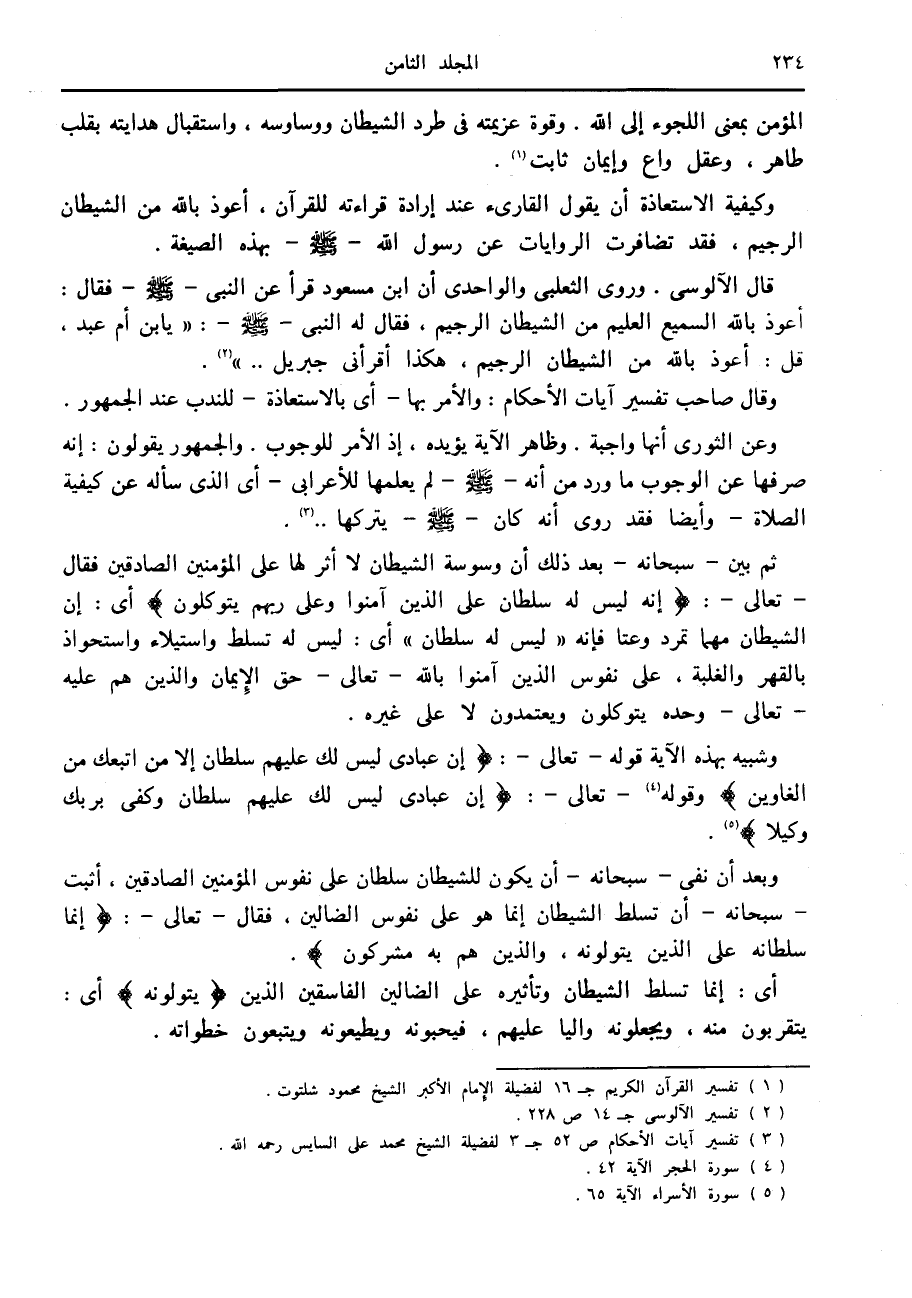 ٢٣٤
المجلد الثامن
المؤمن بمعنى اللجوء إلى الله . وقوة عزيمته فى طرد الشيطان ووساوسه ، واستقبال هدايته بقلب
طاهر ، وعقل واع وإيمان ثابت(١) .
وكيفية الاستعاذة أن يقول القارىء عند إرادة قراءته للقرآن ، أعوذ بالله من الشيطان
الرجيم ، فقد تضافرت الروايات عن رسول الله – ﷺ – بهذه الصيغة .
قال الآلوسى . وروى الثعلبى والواحدى أن ابن مسعود قرأ عن النبى – ﷺ – فقال :
أعوذ بالله السميع العليم من الشيطان الرجيم ، فقال له النبى – ﷺ – : « يابن أم عبد ،
قل : أعوذ بالله من الشيطان الرجيم ، هكذا أقرأنى جبريل .. »(٢) .
وقال صاحب تفسير آيات الأحكام : والأمر بها – أى بالاستعاذة – للندب عند الجمهور .
وعن الثورى أنها واجبة . وظاهر الآية يؤيده ، إذ الأمر للوجوب . والجمهور يقولون : إنه
صرفها عن الوجوب ما ورد من أنه – ﷺ – لم يعلمها للأعرابى – أى الذى سأله عن كيفية
الصلاة – وأيضا فقد روى أنه كان – ﷺ – يتركها ..(٣) .
ثم بين – سبحانه – بعد ذلك أن وسوسة الشيطان لا أثر لها على المؤمنين الصادقين فقال
– تعالى – : ﴿ إنه ليس له سلطان على الذين آمنوا وعلى ربهم يتوكلون ﴾ أى : إن
الشيطان مهما تمرد وعتا فإنه « ليس له سلطان » أى : ليس له تسلط واستيلاء واستحواذ
بالقهر والغلبة ، على نفوس الذين آمنوا بالله – تعالى – حق الإيمان والذين هم عليه
– تعالى – وحده يتوكلون ويعتمدون لا على غيره .
وشبيه بهذه الآية قوله – تعالى – : ﴿ إن عبادى ليس لك عليهم سلطان إلا من اتبعك من
الغاوين ﴾ وقوله(٤) – تعالى – : ﴿ إن عبادى ليس لك عليهم سلطان وكفى بربك
وكيلا ﴾(٥) .
وبعد أن نفى – سبحانه – أن يكون للشيطان سلطان على نفوس المؤمنين الصادقين ، أثبت
– سبحانه – أن تسلط الشيطان إنما هو على نفوس الضالين ، فقال – تعالى – : ﴿ إنما
سلطانه على الذين يتولونه ، والذين هم به مشركون ﴾ .
أى : إنما تسلط الشيطان وتأثيره على الضالين الفاسقين الذين ﴿ يتولونه ﴾ أى :
يتقربون منه ، ويجعلونه واليا عليهم ، فيحبونه ويطيعونه ويتبعون خطواته .
( ١ ) تفسير القرآن الكريم جـ ١٦ لفضيلة الإمام الأكبر الشيخ محمود شلتوت .
( ٢ ) تفسير الآلوسى جـ ١٤ ص ٢٢٨ .
( ٣ ) تفسير آيات الأحكام ص ٥٢ جـ ٣ لفضيلة الشيخ محمد على السايس رحمه الله .
( ٤ ) سورة الحجر الآية ٤٢ .
( ٥ ) سورة الأسراء الآية ٦٥ .